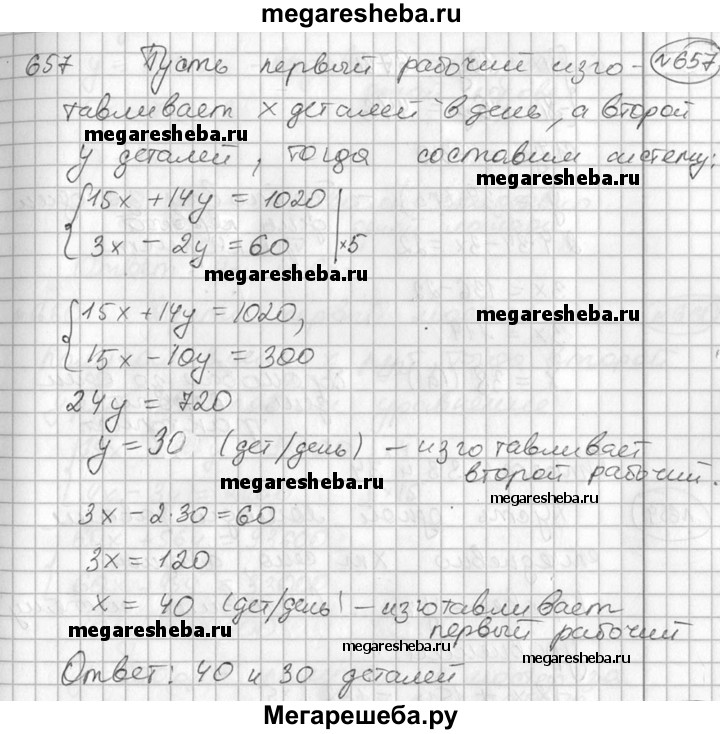 megaresheba.ru
657 Пусть первый рабочий изго- №657
тавливает x деталей в день, а второй
megaresheba.ru
y деталей, тогда составим систему:
megaresheba.ru
15x + 14y = 1020
3x - 2y = 60 | ×5
megaresheba.ru
15x + 14y = 1020,
megaresheba.ru
15x - 10y = 300
24y = 720
y = 30 (дет/день) - изготавливает
второй рабочий.
megaresheba.ru
megaresheba.ru
3x - 2·30 = 60
3x = 120
x = 40 (дет/день) - изготавливает
первый рабочий
megaresheba.ru
megaresheba.ru
megaresheba.ru
Ответ: 40 и 30 деталей
Мегарешеба.ру